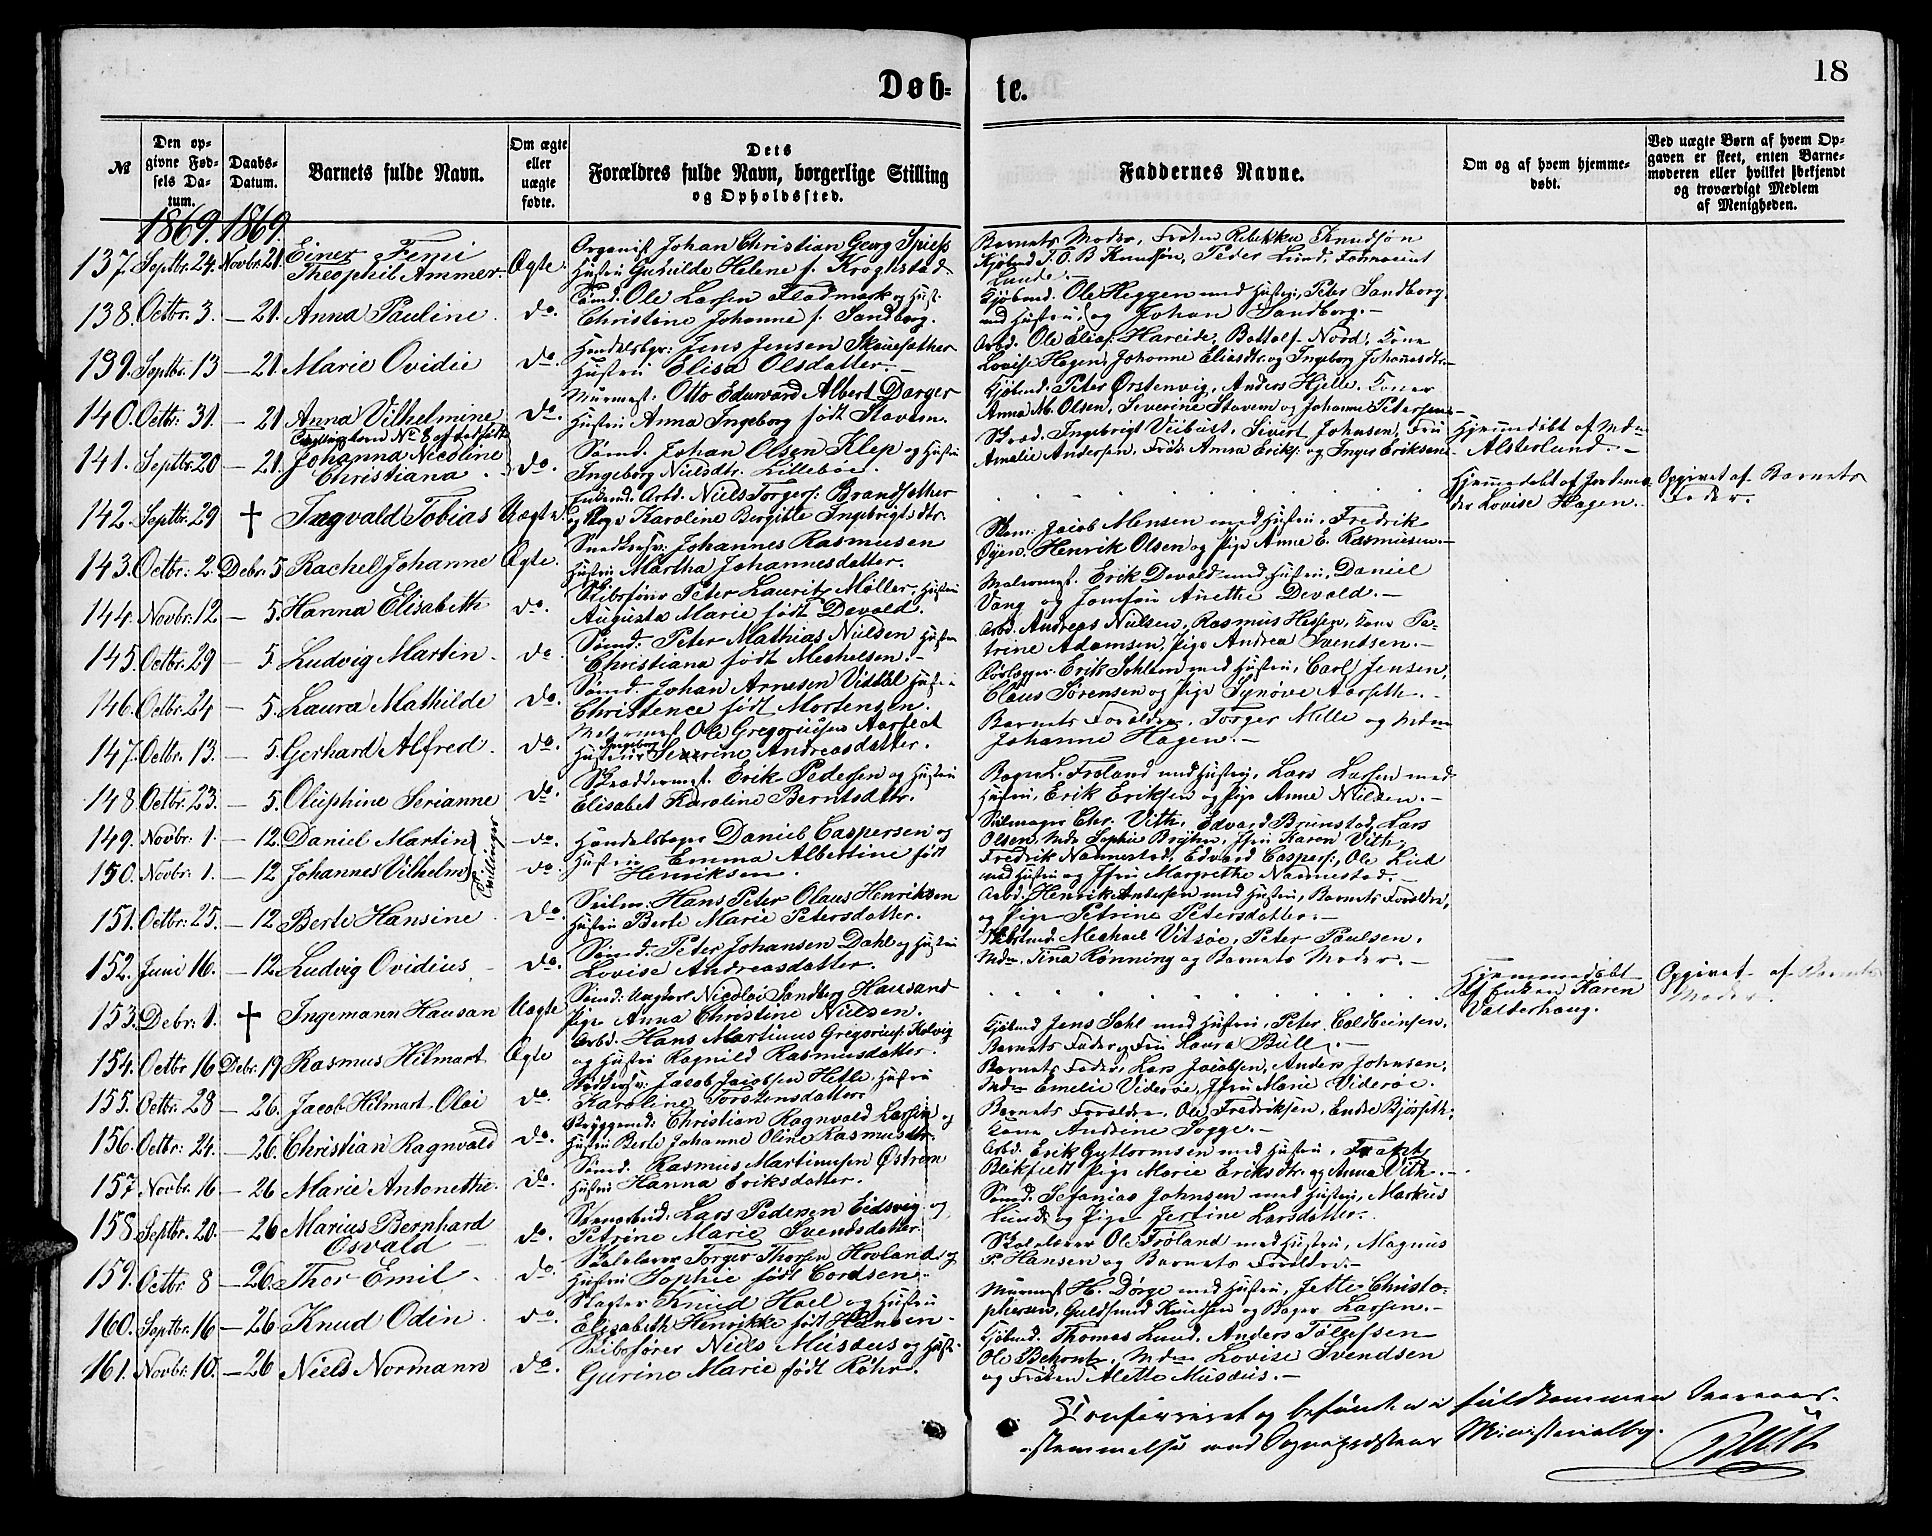 Døb-
te.
18
№
Den op-
givne Fød-
sels Da-
tum.
Daabs-
Datum.
Barnets fulde Navn.
Om ægte
eller
uægte
fødte.
Dets
Forældres fulde Navn, borgerlige Stilling
og Opholdssted.
Faddernes Navne.
Om og af hvem hjemme-
døbt.
Ved uægte Børn af hvem Op-
gaven er skeet, enten Barne-
moderen eller hvilket bekjendt
og troværdigt Medlem
af Menigheden.
1869. 1869.
137. Septbr. 24. Novbr. 21. Einer
Theophil Ammer. Ægte. Organist Johan Christian Georg Spiess
Hustru Gunhilde Helene f. Kroghstad
Barnets Moder, Frøken Rebekka Knudsøn
Kjøbmd. T. O. B. Knudsøn, Peder Lund,
Lunde.
138. Octbr. 3. — 21. Anna Pauline. do. Sømd. Ole Larsen Fladmark og Hust.
Christine Johanne f. Sandborg.
Kjøbmd. Ole Heggen med Hustru, Peter Sandborg
med Hustru og Johan Sandborg.
139. Septbr. 13 — 21. Marie Ovidie do. Handelsbgr: Jens Jensen Skouesather
Hustru Elisa Olsdatter.
Arbd. Ole Elias. Hareide, Bottolf Nord, Kone
Lovise Hagen, Johanne Eliasdtr. og Ingeborg Johannesdtr.
140. Octbr: 31. — 21. Anna Vilhelmine do. Murmest. Otto Edurvard Albert Dørger
Hustru Anna Ingeborg født Stavem.
Kjøbmd. Peter Ørstenvig, Anders Hjelle, Koner
Anna M. Olsen, Severine Stavem og Johanne Petersen.
141. Septbr. 20 — 21. Johanna Nicoline
Christiana. do. Sømd. Johan Olsen Klep og Hustru
Ingeborg Nielsdtr. Lillebøe.
Skrad. Ingebrigt Veibust, Sivert Johnsen, Fru
Amalie Andersen, Frøk. Anna Eriks. og Inger Eriksen.
Hjemmedøbt af Mdm
Alsterlund.
142. Septbr. 29 † Ingvald Tobias Uægte. Enkemd. Arbd. Niels Torgers: Brandsather
og Pige Karoline Bergitte Ingebrigtsdtr.
Hjemmedøbt af Jordemo-
der Lovise Hagen.
Opgivet af Barnets
Fader.
143. Octbr: 2. Debr. 5. Rachel Johanne Ægte. Snedkersv: Johannes Rasmusen
Hustru Martha Johannesdatter.
Skom. Jacob Mensen med Hustru, Fredrik
Øyen, Henrik Olsen og Pige Anne E. Rasmusen.
144. Novbr: 12. — 5. Hanna Elisabeth do. Skibsfører Peter Lauritz Møller, Hustru
Augusta Marie født Devold.
Malermest. Erik Devold med Hustru, Daniel
Vang og Jomfru Anethe Devold.
145. Octbr: 29 — 5. Ludvig Martin. do. Sømd: Peter Mathias Nielsen Hustru
Christiana født Mechelsen.
Arbd. Andreas Nielsen, Rasmus Hessen, Kone Pe-
trine Adamsen, Pige Andrea Svendsen.
146. Octbr: 24 — 5. Laura Mathilde do. Sømd. Johan Arnesen Viddal Hustru
Christence født Mortensen.
Erik Sohlem med Hustru, Carl Jensen,
Claus Sørensen og Pige Synøve Aarseth.
147. Octbr. 13. — 5. Gerhard Alfred. do. Malermest. Ole Gregoriusen Aarflot
Hustru Ingeborg Severine Andreasdatter.
Barnets Forældre, Torger Melle og Mdm
Johanne Hagen.
148. Octbr. 23. — 5. Oluphine Serianne do. Skræddermest. Erik Pedersen og Hustru
Elisabet Karoline Berntsdatter.
Froland med Hustru, Lars Larsen med
Hustru, Erik Eriksen og Pige Anne Nielsen.
149. Novbr: 1. — 12. Daniel Martin do. Handelsbgr Daniel Caspersen og
Hustru Emma Albertine født
Henriksen.
Seilmager Chr. Vith, Edvard Brunstad, Lars
Olsen, Mdm Sophie Brythen, Jfru Karen Vith
150. Novbr: 1. — 12. Johannes Vilhelm do.
Tvillinger
Fredrik Nannestad, Edvard Caspers:, Ole Lied
med Hustru og Jfru Margrethe Nannestad.
151. Octbr: 25. — 12 Berte Hansine. do. Seilm. Hans Peter Olaus Henriksen
Hustru Berte Marie Petersdatter.
Arbd. Henrik Andersen med Hustru, Barnets Forældre,
og Pige Petrine Petersdatter.
152. Juni 16. — 12. Ludvig Ovidius. do. Sømd. Peter Johansen Dahl og Hustru
Lovise Andreasdatter.
Michael Vitsøe, Peter Paulsen,
Mdm Tina Rønning og Barnets Moder.
153. Debr: 1. † Ingemann Hausan Uægte Sømd: Ungkarl Nicolai Sandberg Hausand
Pige Anna Christine Nielsen.
Hjemmedøbt
af Enken Karen
Valderhaug.
Opgivet af Barnets
Moder.
154. Octbr 16. Debr: 19. Rasmus Hilmart. Ægte Arbd. Hans Martinus Gregorius. Kolvig
og Hustru Ragnild Rasmusdatter.
Kjøbmd Jens Dahl med Hustru, Peter Coldevinsen,
Barnets Fader, Fru Laura Bull.
155. Octbr: 28 — 26. Jacob Hilmart Olai do. Jacob Jacobsen Hetle Hustru
Karoline Torstensdatter
Barnets Fader, Lars Jacobsen, Anders Johnsen,
Mdm Emelie Viderøe, Jfru Marie Viderøe.
156. Octbr: 24. — 26. Christian Ragnvald do. Christian Ragnvald Larsen og
Hustru Berte Johanne Oline Rasmusdtr.
Barnets Forældre, Ole Fredriksen, Endre Bjørseth,
Kone Andrine Sogge.
157. Novbr: 16 — 26 Marie Antonethe. do. Sømd. Rasmus Martinusen Østrem
Hustru Hanna Eriksdatter.
Arbd. Erik Gyttormsen med Hustru,
Blikfeldt Pige Marie Eriksdtr. og Anna Vith.
158. Septbr. 20. — 26 Marius Bernhard
Osvald do. Lars Pedersen Eidsvig og
Petrine Marie Svendsdatter.
Sømd. Sefanias Johnsen med Hustru, Markus
Lund og Pige Jertine Larsdatter.
159. Octbr 8 — 26. Thor Emil. do. Skolelærer Torger Thorsen Hovland og
Hustru Sophie født Cordsen.
Skolelærer Ole Frøland med Hustru, Magnus
P. Hansen og Barnets Forældre.
160. Septbr. 16 — 26. Knud Odin do. Slagter Knud Hoel og Hustru
Elisabeth Henrikke født Hansen.
Murmest H. Dørge med Hustru, Jette Christo-
phersen, Guldsmed Knudsen og Bager Larsen.
161. Novbr: 10. — 26 Niels Normann do. Skibsfører Niels Musæus og Hust.
Gurine Marie født Røhr.
Kjøbmd. Thomas Lund, Anders Tøllefsen
Ole Mdm Lovise Svendsen
og Frøken Alette Musæus.
Confereret og befunden i fuldkommen Overens-
stemmelse med Sognepræstens Ministerialbog.